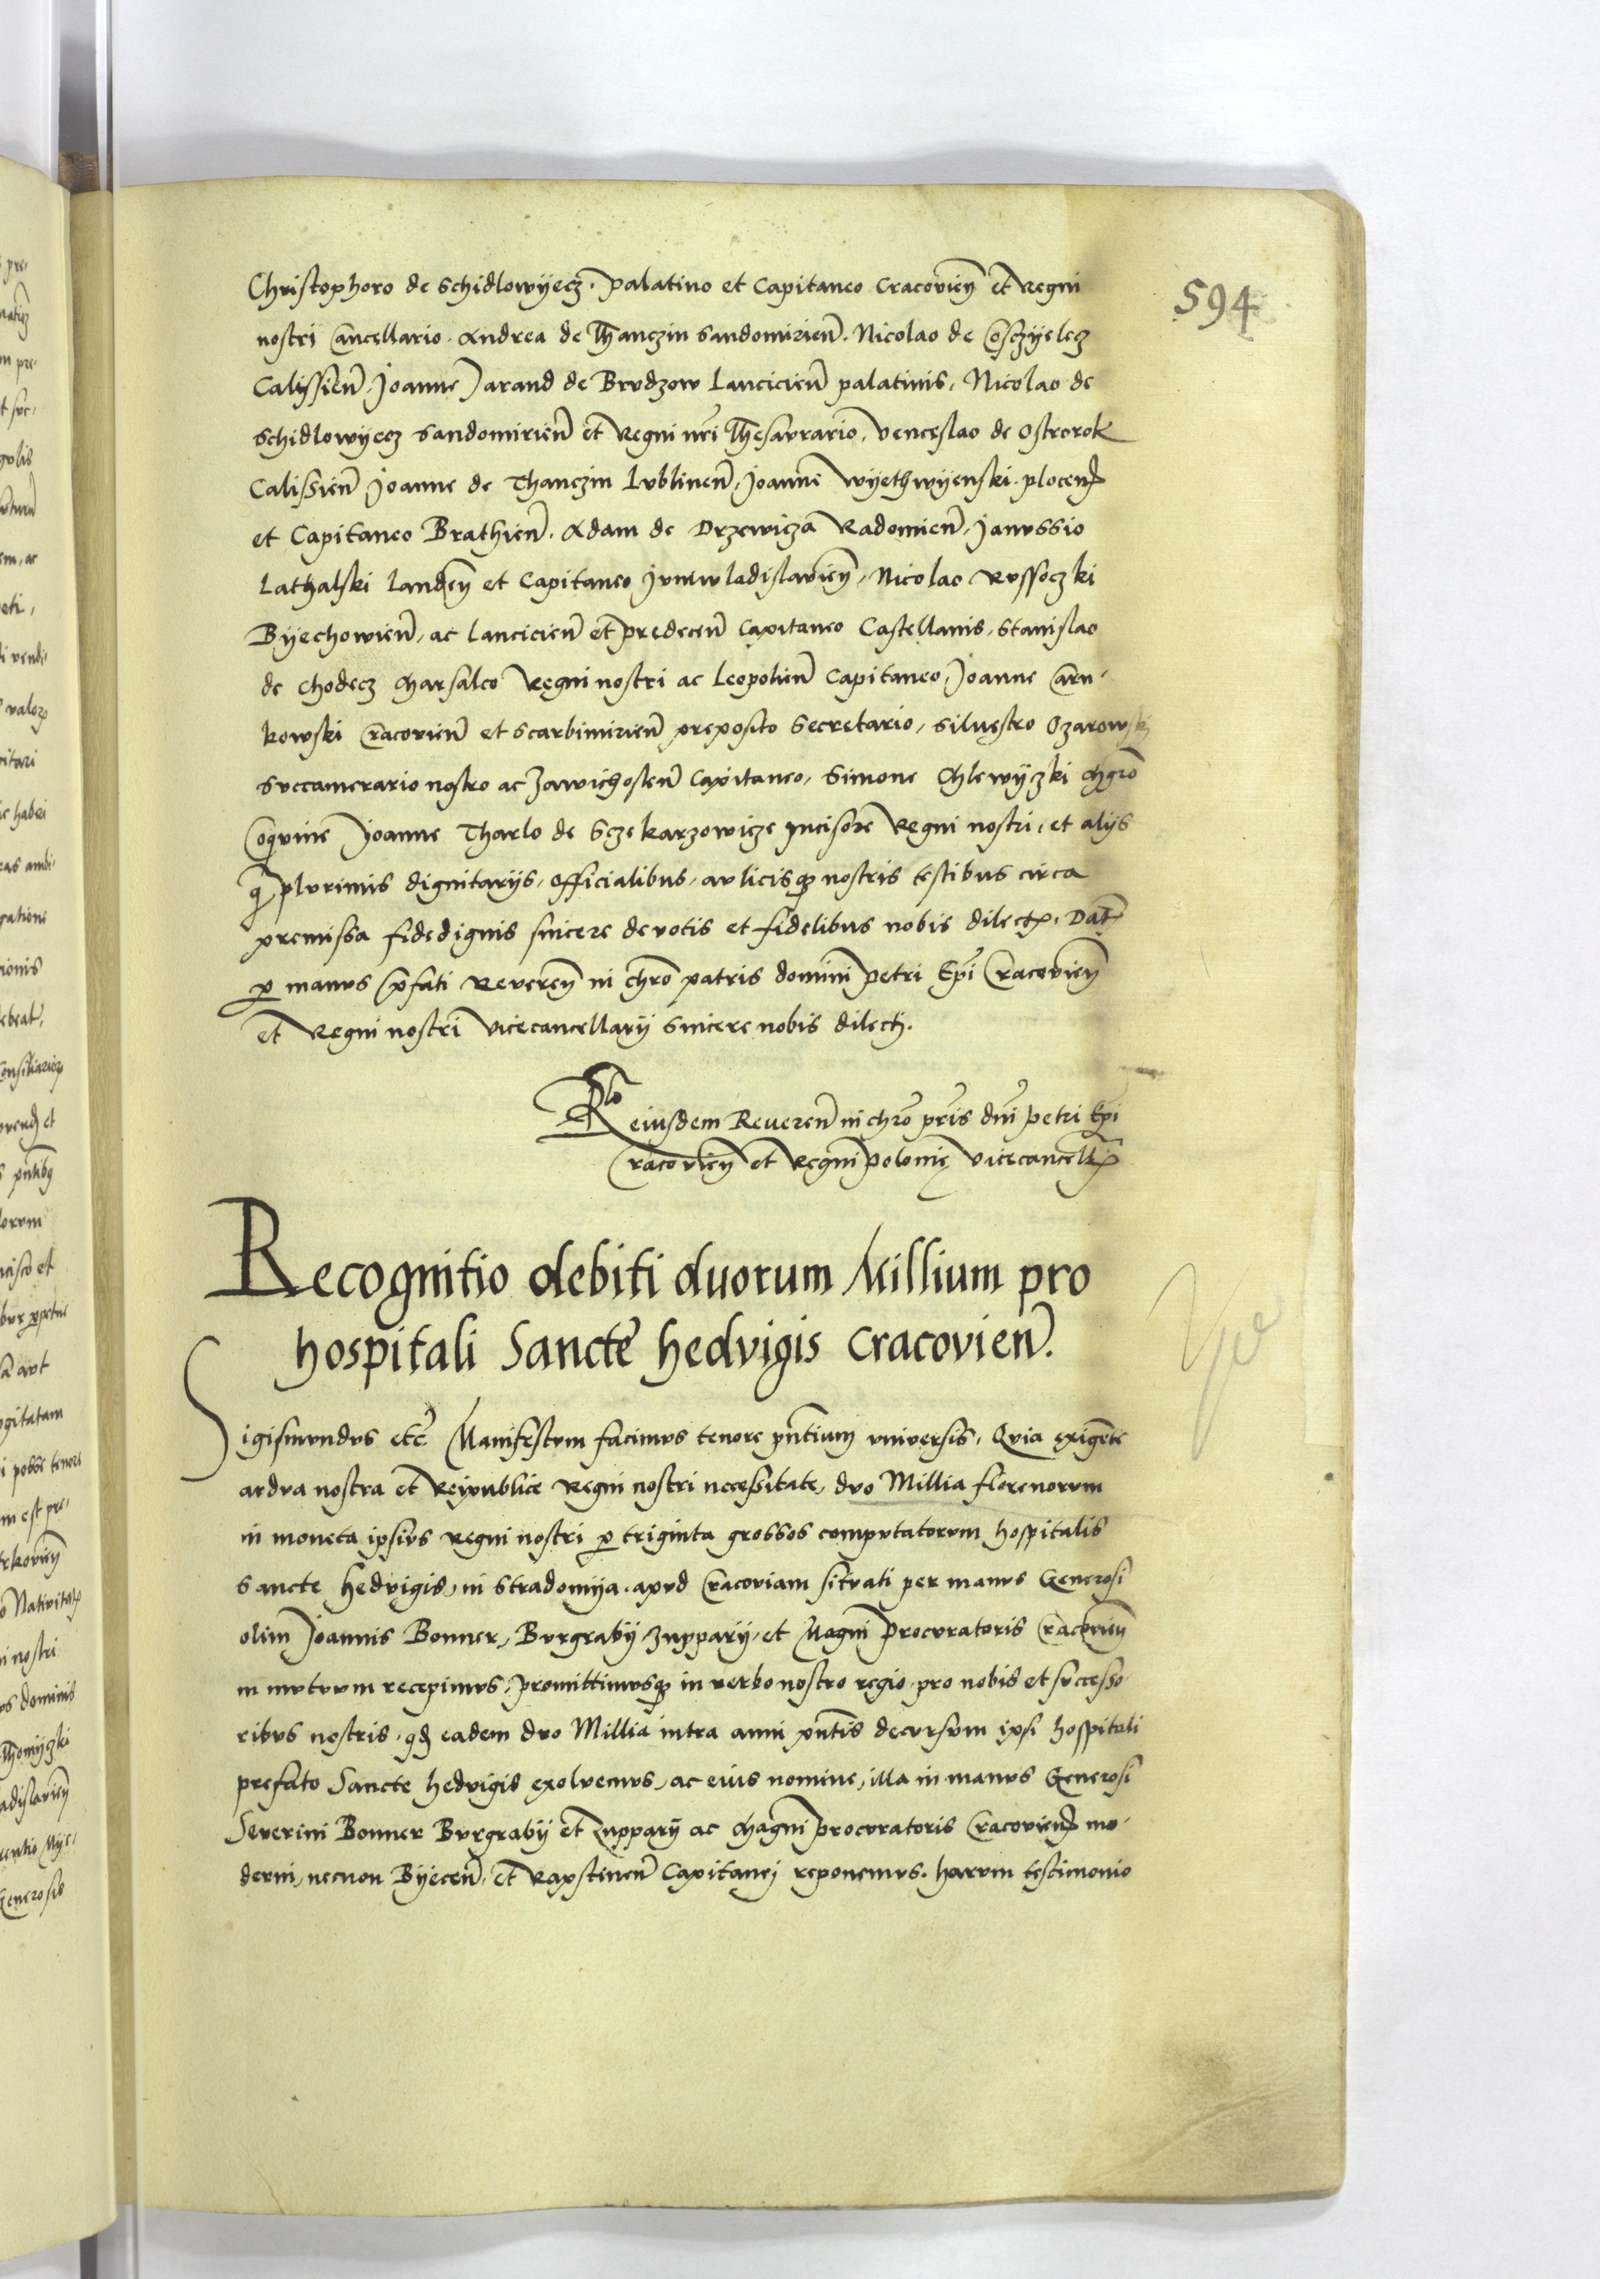 594
Christophoro de Schidlowÿecz. Palatino et Capitaneo Cracovień et Regni
nostri Cancellario. Andrea de Thanczin Sandomirień. Nicolao de Cosczÿelecz
Calissień. Joanne Jarand de Brvdzow Lancicień palatinis, Nicolao de
Schidlowÿecz Sandomirień et Regni nrī Thesavrario, Venceslao de Ostrorok
Calissień Joanne de Thanczin Lvblineń, Joanne Wÿethwÿenski. ploceń
et Capitaneo Brathień. Adam de Drzewicza Radomień. Janvssio
Lathalski Landeń et Capitaneo Jvniwladislavień, Nicolao Rvssoczki
Bÿechowień, ac Lancicień et predeceń Capitaneo Castellanis, Stanislao
de Chodecz Marsalco Regni nostri ac Leopolień Capitaneo, Joanne Carn-
kowski Cracovień et Scarbimirień preposito Secretario, Siluestro Ozarowski
Svccamerario nostro ac Zawichosteń Capitaneo, Simone Chlewÿczki Mgrō
Coqvine Joanne Tharlo de Sczekarzowicze Incisore Regni nostri, et alijs
q̄ plvrimis dignitarijs, officialibus, avlicisqȝ nostris testibus circa
premissa fidedignis sincere devotis et fidelibus nobis dilectꝭ. Dat̄
ꝑ manvs p̄fati Revereń in chrō patris domini Petri Epī Cracovień
et Regni nostri Vicecancellarij Sincere nobis dilectj.
Rlo eiusdem Revereń in chrō pris dnī Petri Epī
Cracovień et Regni polonię Vicecancellꝭ
Recognitio debiti duorum Millium pro
hospitali Sancte hedvigis Cracovień.
Sigismvndvs etc̄ Manifestvm facimvs tenore pn̄tium vniversis, Qvia exigēte
ardva nostra et Reipublice Regni nostri necessitate, dvo Millia florenorvm
in moneta ipsivs Regni nostri ꝑ triginta grossos compvtatorvm hospitalis
Sancte hedvigis, in Stradomÿa. apvd Cracoviam sitvati per manvs Generosi
olim Joannis Bonner, Bvrgrabÿ, Zupparÿ, et Magni Procvratoris Cracovień
in mvtvvm recepimvs, promittimvsqȝ in verbo nostro regio, pro nobis et svccesso-
ribvs nostris, qd̄ eadem dvo Millia intra anni pn̄tis decvrsvm ipsi hospitali
prefato Sancte hedvigis exolvemvs, ac eivs nomine, illa in manvs Generosi
Severini Bonner Bvrgrabÿ et Zupparÿ ac Magni procvratoris Cracovień mo-
derni, necnon Bÿeceń, et Rapstineń Capitanei reponemvs. harvm testimonio